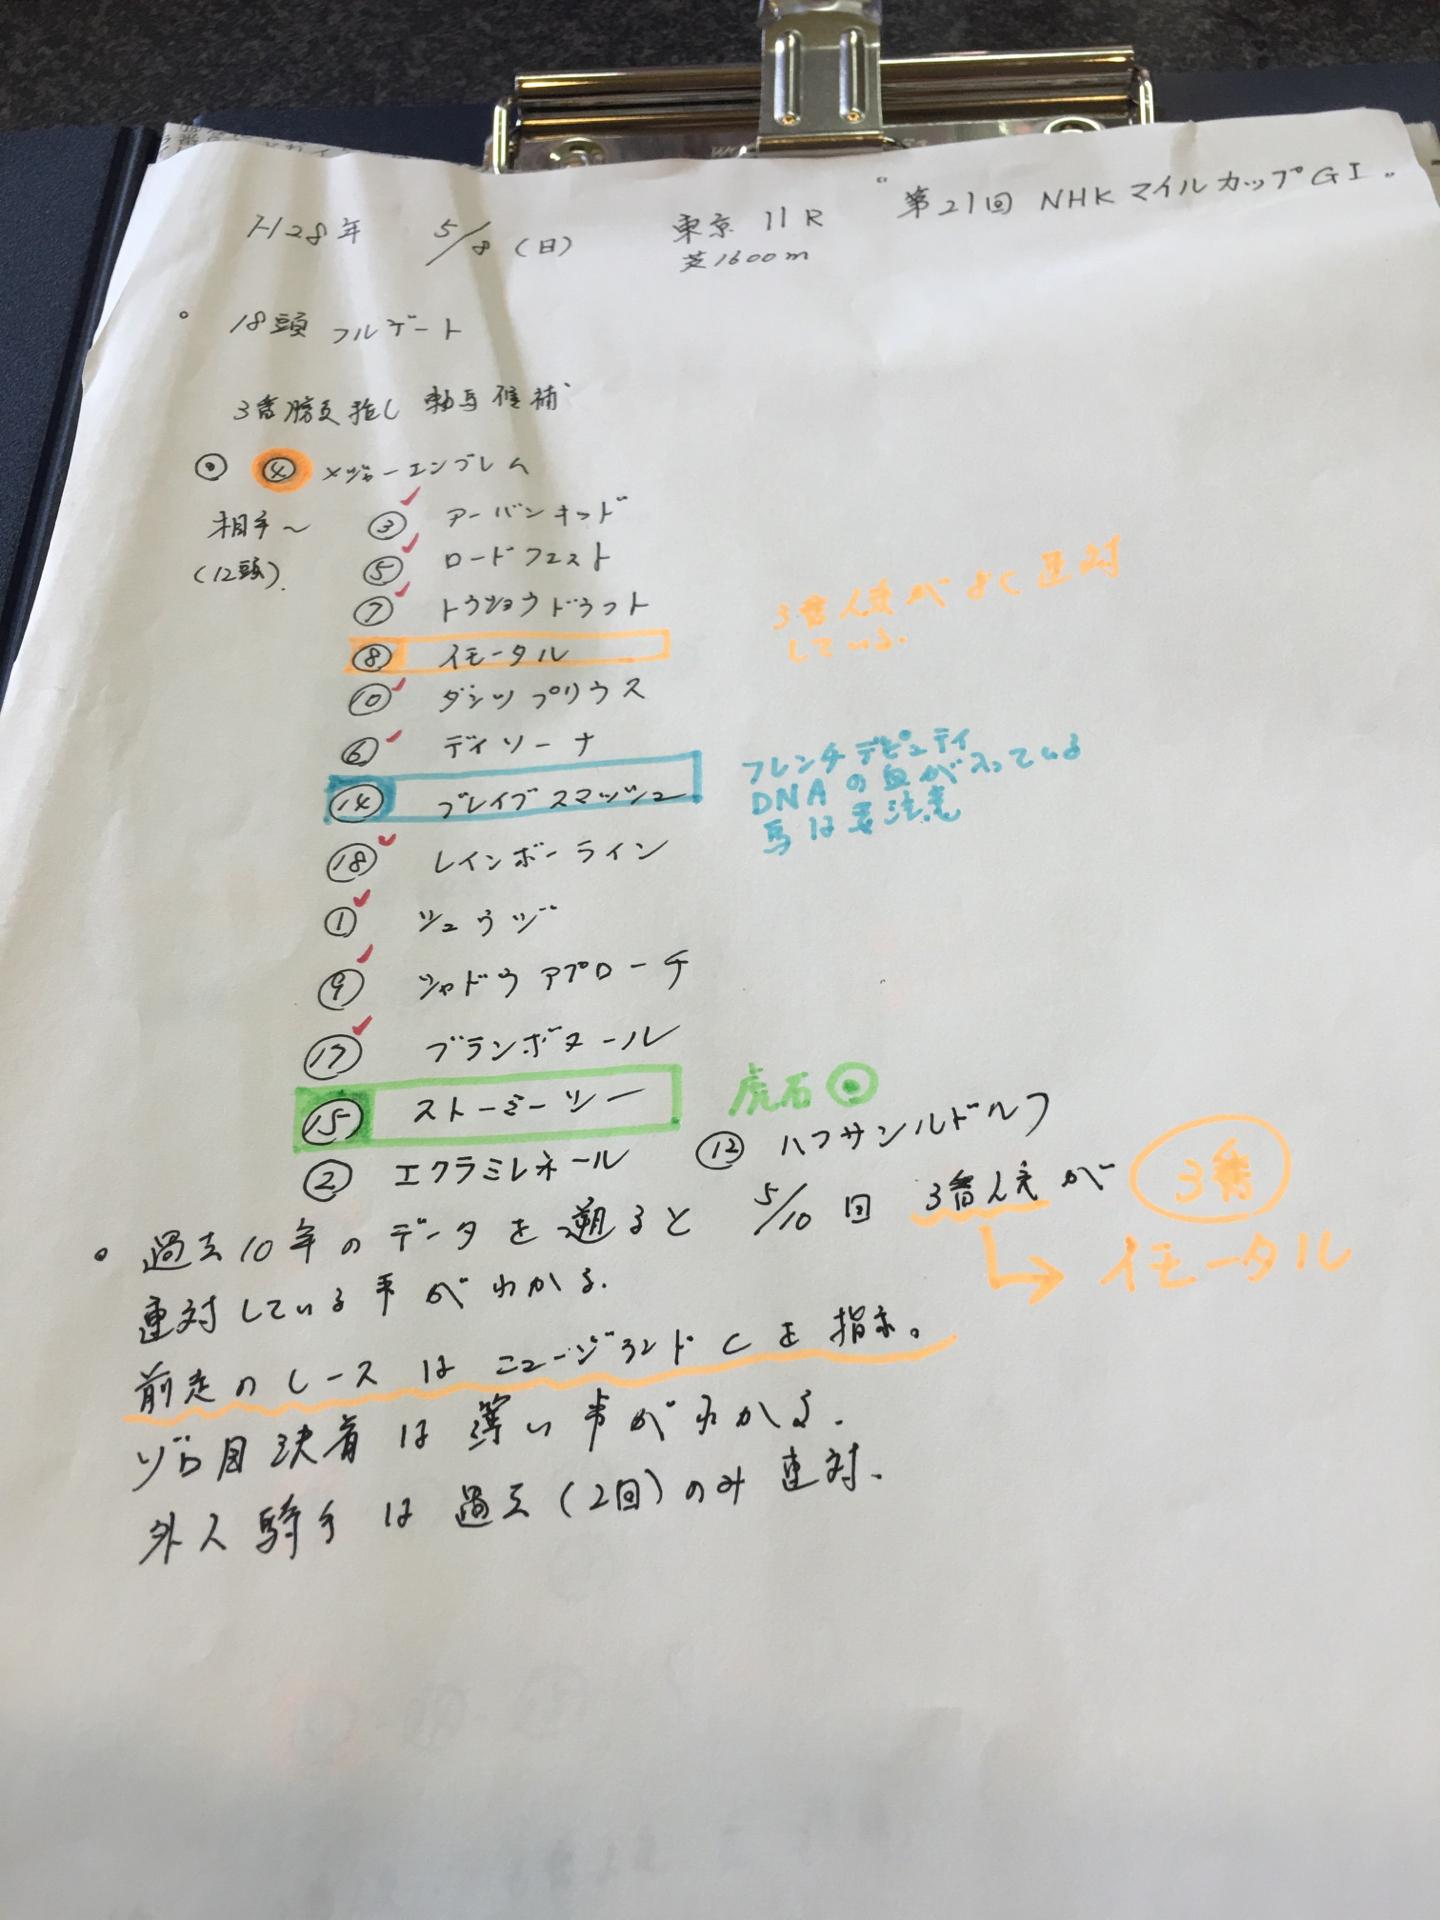 H28年 5/8(日) 東京 11R "第21回 NHKマイルカップGI"
芝1600m
。18頭 フルゲート
3番勝負推し 軸馬候補
◎ ④ メジャーエンブレム
相手〜 ③ アーバンキッド
(12頭). ⑤ ロードフェスト
⑦ トウショウドラフト
3番人気がよく連対
している.
⑧ イモータル
⑩ ダンツプリウス
⑥ ティソーナ
フレンチデピュティ
DNAの血が入っている
馬は要注意
⑭ ブレイブスマッシュ
⑱ レインボーライン
① シュウジ
⑨ シャドウアプローチ
⑰ ブランボヌール
⑮ ストーミーシー 虎石◎
② エクラミレネール ⑫ ハクサンルドルフ
。過去10年のデータを遡ると 5/10回 3番人気が 3番
連対している事がわかる. → イモータル
前走のレースはニュージランドCを指示。
ゾロ目決着は薄い事がわかる.
外人騎手は過去(2回)のみ連対.